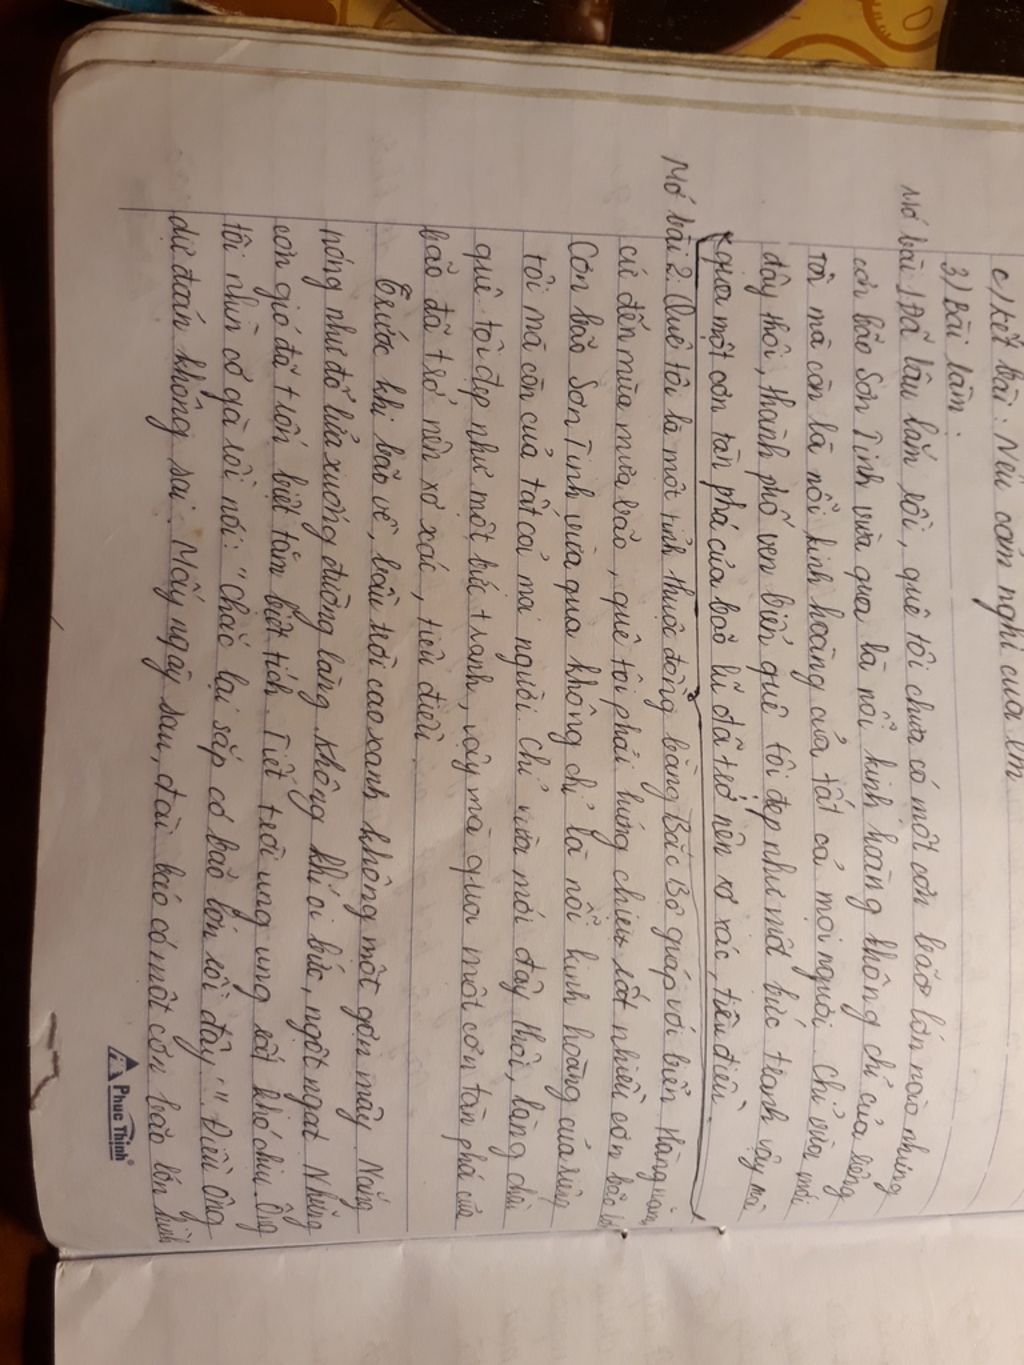 c) Kết bài: Nêu cảm nghĩ của em
3) Bài làm:
Mở bài 1: Đã lâu lắm rồi, quê tôi chưa có một cơn bão lớn nào nhưng
cơn bão Sơn Tinh vừa qua là nỗi kinh hoàng không chỉ của riêng
tôi mà còn là nỗi kinh hoàng của tất cả mọi người. Chỉ vừa mới
đây thôi, thành phố ven biển quê tôi đẹp như một bức tranh vậy mà
qua một cơn tàn phá của bão lũ đã trở nên xơ xác, tiêu điều.
Mở bài 2: Quê tôi là một tỉnh thuộc đồng bằng Bắc Bộ giáp với biển. Hàng năm,
cứ đến mùa mưa bão, quê tôi phải hứng chịu rất nhiều cơn bão lớn
Cơn bão Sơn Tinh vừa qua không chỉ là nỗi kinh hoàng của riêng
tôi mà còn của tất cả mọi người. Chỉ vừa mới đây thôi, làng chài
quê tôi đẹp như một bức tranh, vậy mà qua một cơn tàn phá của
bão đã trở nên xơ xác, tiêu điều.
Trước khi bão về, bầu trời cao xanh không một gợn mây. Nắng
nóng như đổ lửa xuống đường làng. Không khí oi bức, ngột ngạt. Những
cơn gió đã trốn biệt tăm biệt tích. Tiết trời ung ung rất khó chịu. Ông
tôi nhìn cỏ gà rồi nói: "Chắc lại sắp có bão lớn rồi đây." Điều ông
dự đoán không sai. Mấy ngày sau, đài báo có một cơn bão lớn hình
Phuc Thinh®